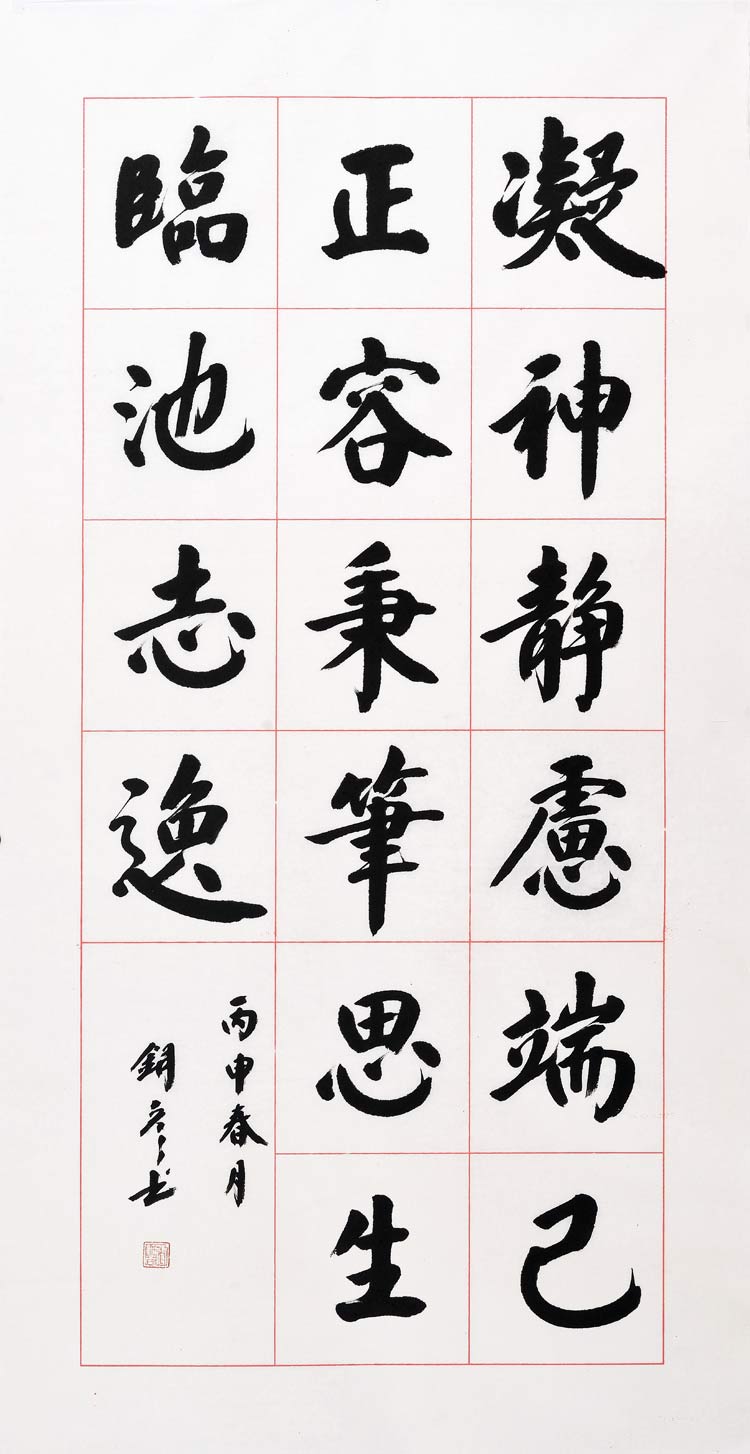 凝神静慮端己
正容秉筆思生
臨池志逸
丙申春月